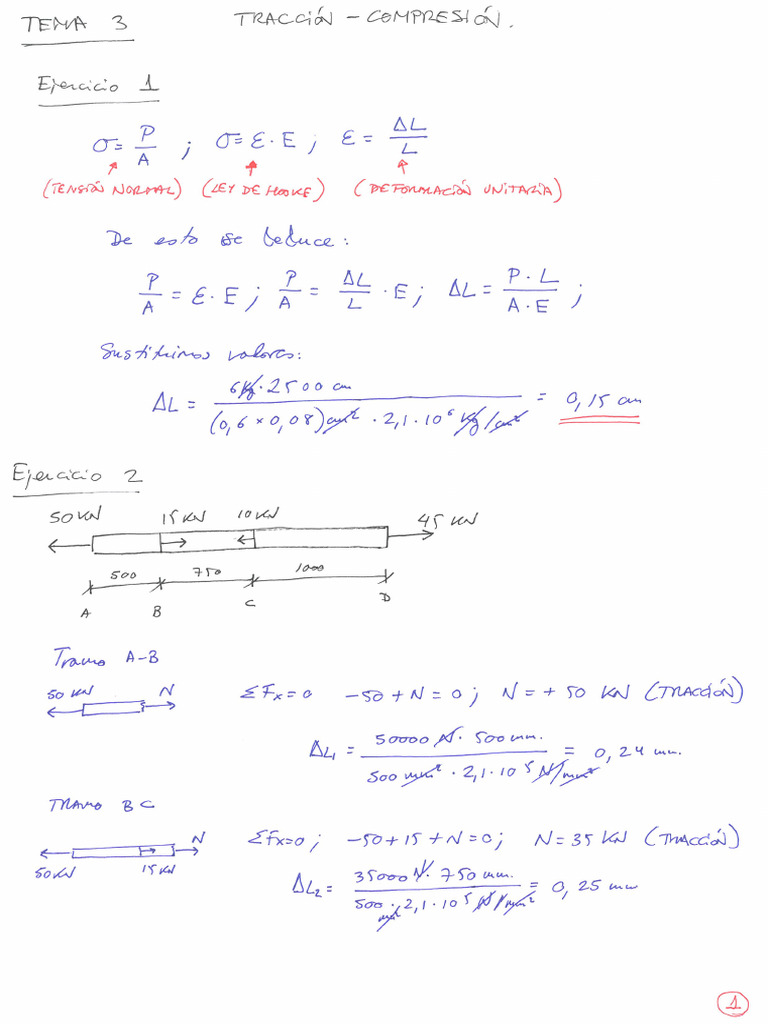 TEMA 3 TRACCIÓN - COMPRESIÓN.
Ejercicio 1
σ = P/A ; σ = ε · E ; ε = ΔL/L
(TENSIÓN NORMAL) (LEY DE HOOKE) (DEFORMACIÓN UNITARIA)
De esto se deduce:
P/A = ε · E ; P/A = ΔL/L · E ; ΔL = P · L / A · E ;
Sustituimos valores:
ΔL = 6 Kg · 2500 cm / (0,6 × 0,08) cm² · 2,1 · 10⁶ Kg/cm² = 0,15 cm
Ejercicio 2
50 KN 15 KN 10 KN 45 KN
500 750 1000
A B C D
Tramo A-B
50 KN N ΣFx=0 -50 + N = 0 ; N = + 50 KN (TRACCIÓN)
ΔL₁ = 50000 N · 500 mm. / 500 mm² · 2,1 · 10⁵ N/mm² = 0,24 mm.
TRAMO BC
50 KN 15 KN N ΣFx=0 ; -50 + 15 + N = 0 ; N = 35 KN (TRACCIÓN)
ΔL₂ = 35000 N · 750 mm. / 500 · mm² 2,1 · 10⁵ N/mm² = 0,25 mm
1